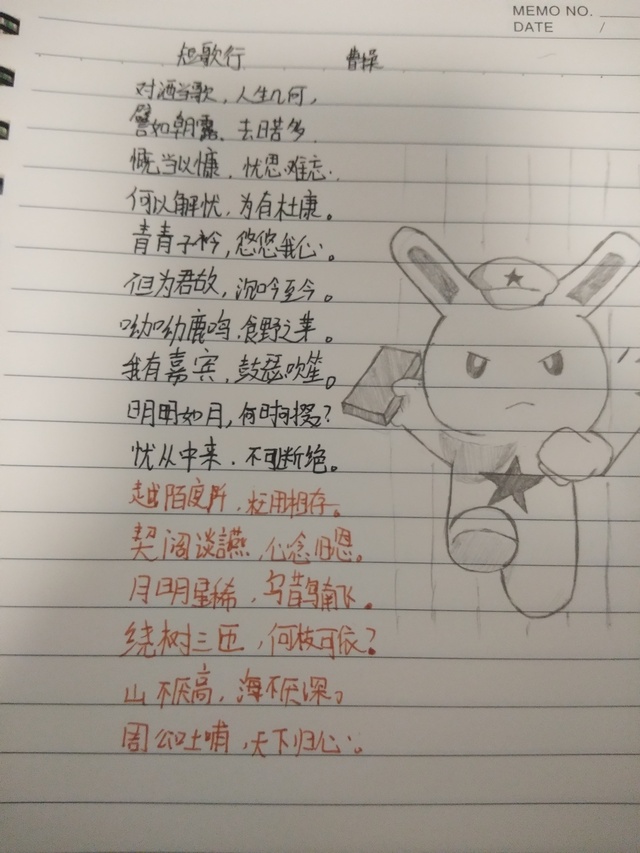 MEMO NO.
DATE /
短歌行 曹操
对酒当歌，人生几何，
譬如朝露、去日苦多.
慨当以慷，忧思难忘.
何以解忧，为有杜康。
青青子衿，悠悠我心.
但为君故，沉吟至今。
呦呦鹿鸣.食野之苹。
我有嘉宾，鼓瑟吹笙。
明明如月，何时可掇？
忧从中来.不可断绝。
越陌度阡，枉用相存。
契阔谈讌，心念旧恩。
月明星稀，乌鹊南飞。
绕树三匝，何枝可依？
山不厌高，海不厌深。
周公吐哺，天下归心。